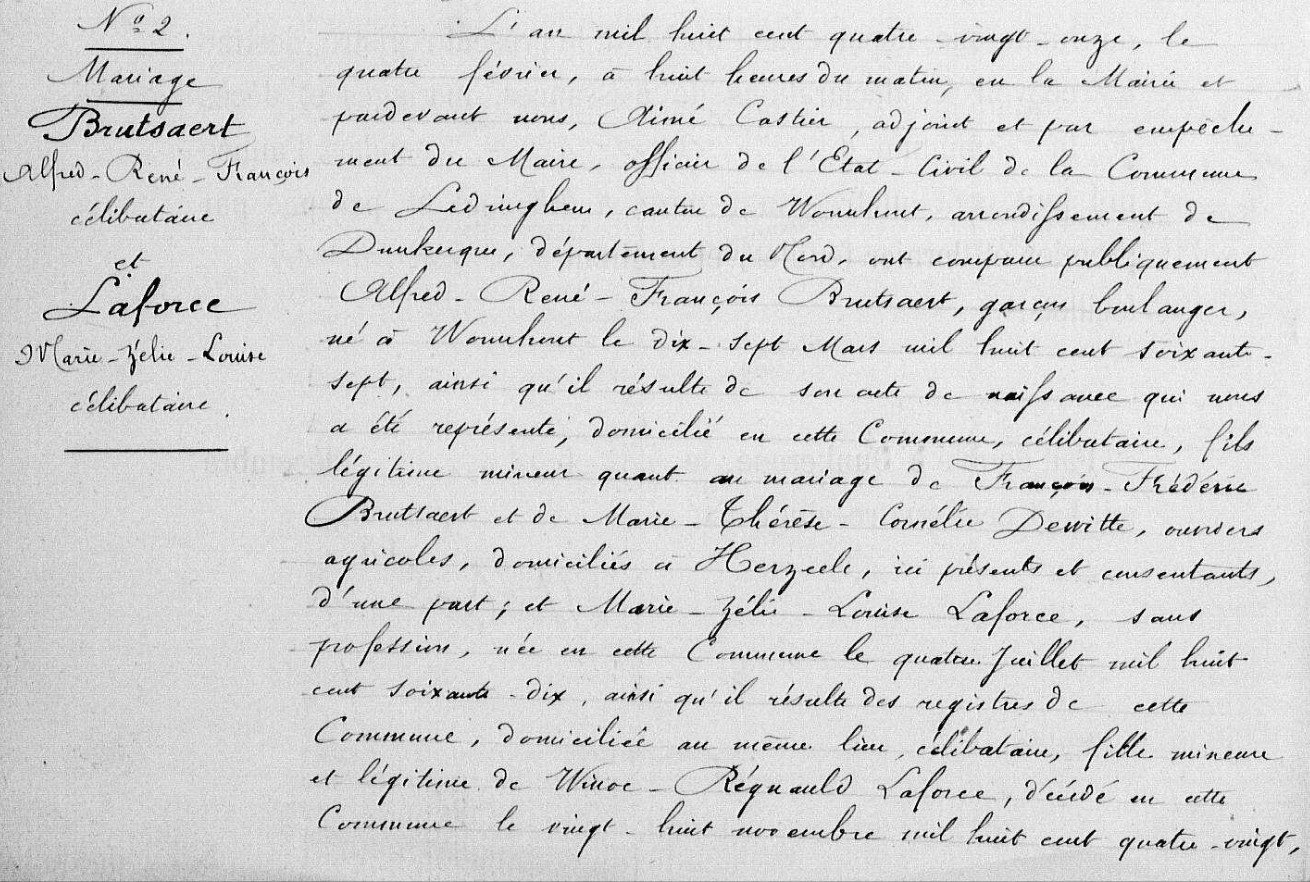 Nº 2.
Mariage
Brutsaert
Alfred-René-François
célibataire
et
Laforce
Marie-Zélie-Louise
célibataire.
L'an mil huit cent quatre-vingt-onze, le
quatre février, à huit heures du matin, en la Mairie et
pardevant nous, Aimé Castier, adjoint et par empêche-
ment du Maire, officier de l'Etat-Civil de la Commune
de Ledringhem, canton de Wormhout, arrondissement de
Dunkerque, département du Nord, ont comparu publiquement
Alfred-René-François Brutsaert, garçon boulanger,
né à Wormhout le dix-sept Mars mil huit cent soixante-
sept, ainsi qu'il résulte de son acte de naissance qui nous
a été représenté, domicilié en cette Commune, célibataire, fils
légitime mineur quant au mariage de François-Frédéric
Brutsaert et de Marie-Thérèse-Cornélie Dewitte, ouvriers
agricoles, domiciliés à Herzeele, ici présents et consentants,
d'une part; et Marie-Zélie-Louise Laforce, sans
profession, née en cette Commune le quatre Juillet mil huit
cent soixante-dix, ainsi qu'il résulte des registres de cette
Commune, domiciliée au même lieu, célibataire, fille mineure
et légitime de Winoc-Régnauld Laforce, décédé en cette
Commune le vingt-huit novembre mil huit cent quatre-vingt,